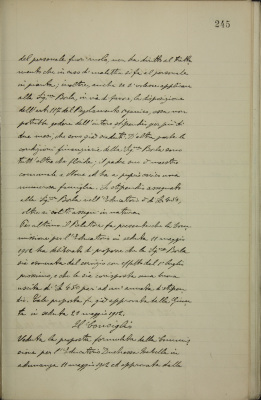 245
del personale fuori ruolo, non ha diritto al tratta
mento che in caso di malattia si fa al personale
in pianta; inoltre, anche se si volesse applicare
alla Sig.na Berla, in via di favore, la disposizione
dell'art. 115 del Regolamento organico, essa non
potrebbe godere dell'intero stipendio per più di
due mesi, che sono già scaduti. D'altra parte le
condizioni finanziarie della Sig.na Berla sono
tutt'altro che floride; il padre suo è maestro
comunale a Roma ed ha a proprio carico una
numerosa famiglia. Lo stipendio assegnato
alla Sig.na Berla nell'Educatorio è di L. 450,
oltre ai soliti assegni in natura.
Per ultimo il Relatore fa presente che la Com
missione per l'Educatorio in seduta 18 maggio
1912 ha deliberato di proporre che la Sig.na Berla
sia esonerata dal servizio con effetto dal 1° luglio
prossimo, e che le sia corrisposta una buona
uscita di L. 450 pari ad un'annata di stipen
dio. Tale proposta fu già approvata dalla Giun
ta in seduta 29 maggio 1912.
Il Consiglio
Veduta la proposta formulata dalla Commis
sione per l'Educatorio Duchessa Isabella in
adunanza 18 maggio 1912 ed approvata dalla